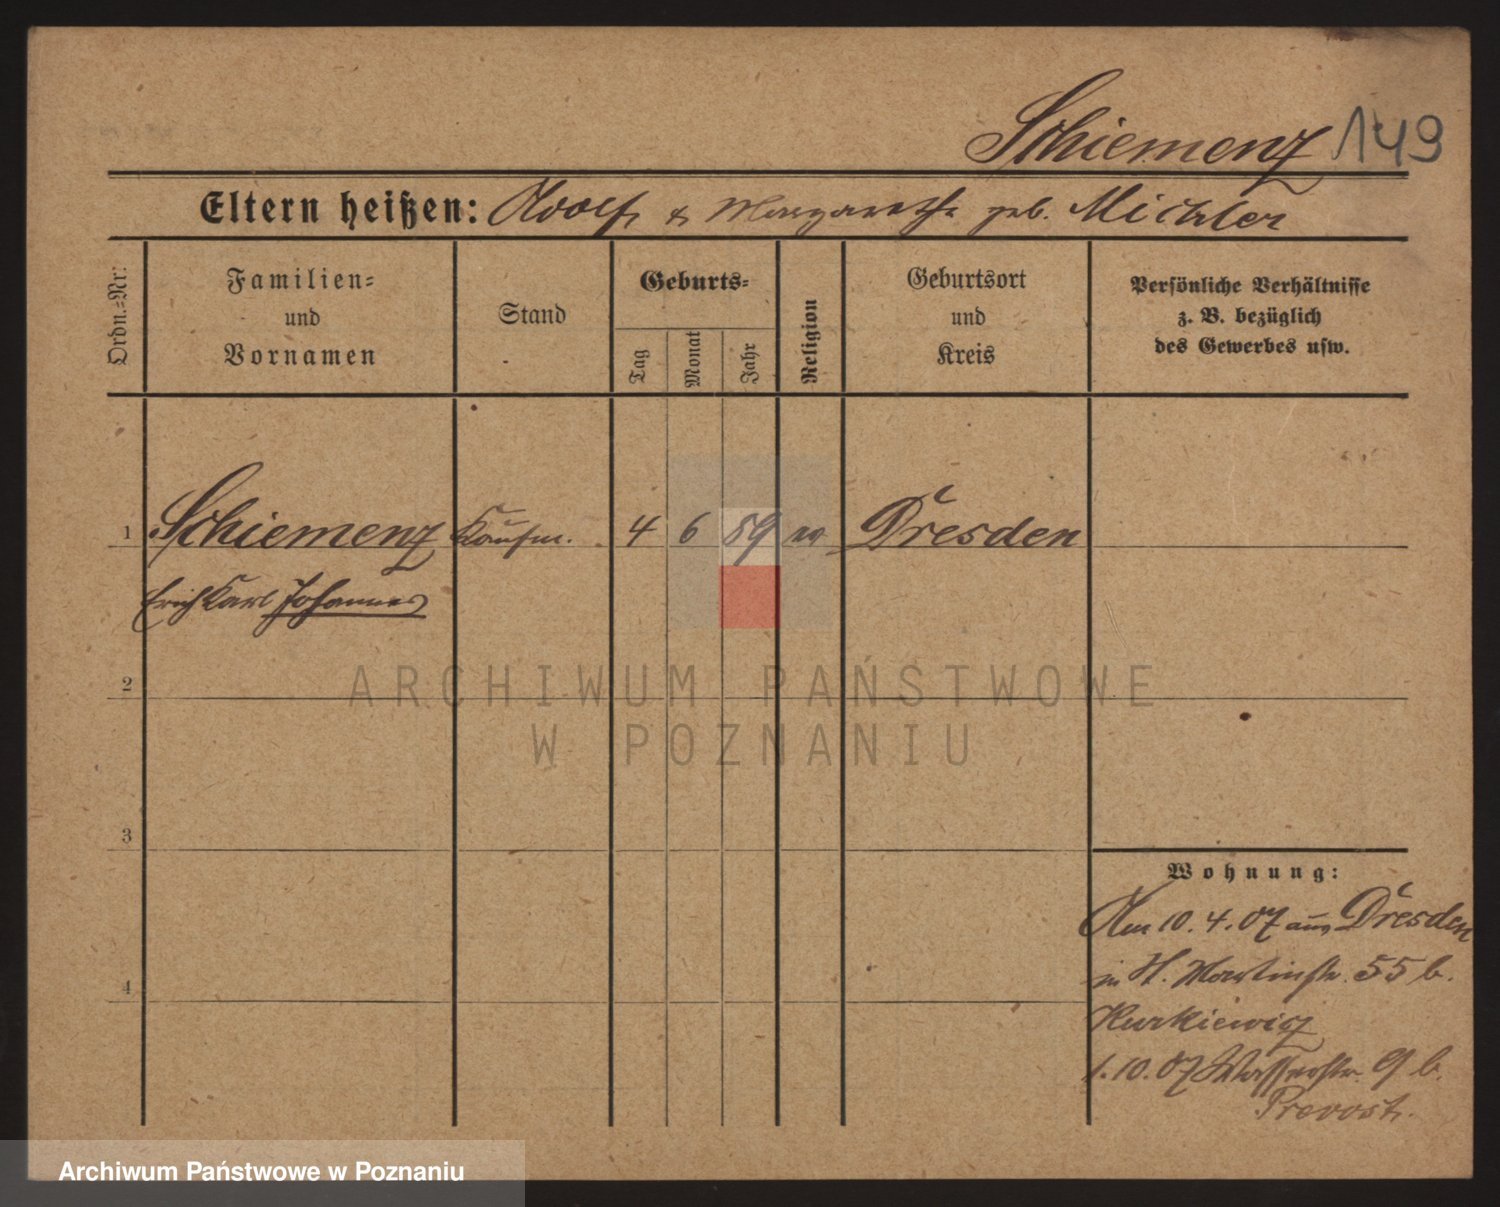 Schiemenz 149
Eltern heißen: Adolf & Margarethe geb. Michler
Ordn.-Nr:
Familien-
und
Vornamen
Stand
Geburts-
Tag
Monat
Jahr
Religion
Geburtsort
und
Kreis
Persönliche Verhältnisse
z. B. bezüglich
des Gewerbes usw.
1 Schiemenz Kaufm. 4 6 89 ev Dresden
Erich Karl Johannes
2
ARCHIWUM PAŃSTWOWE
W POZNANIU
3
Wohnung:
Am 10.4.07 aus Dresden
in St. Martinstr. 55 b.
Kurkiewicz
4
1.10.07 Wasserstr. 9 b.
Prevost.
Archiwum Państwowe w Poznaniu